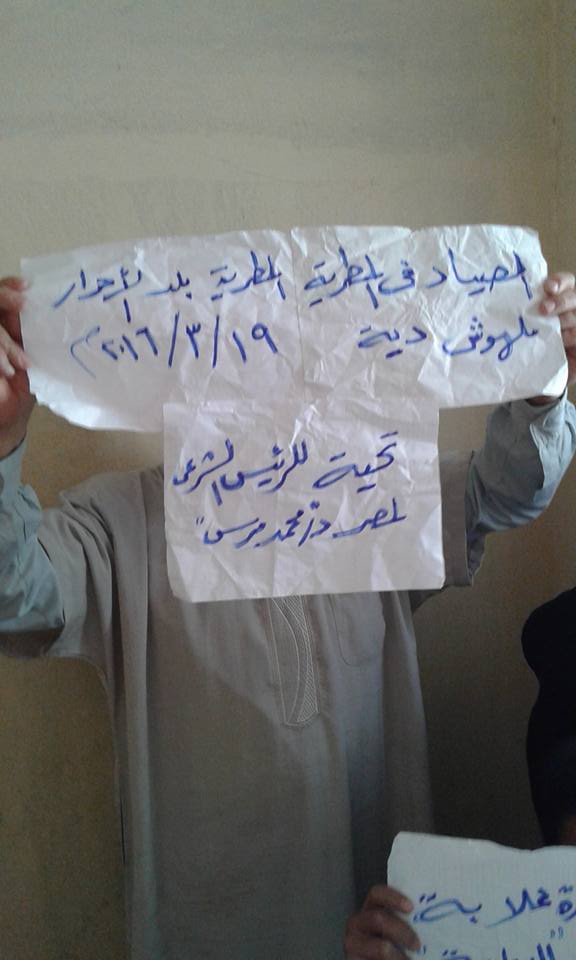 الصياد فى المطرية المطرية بلد الأحرار
ملهوش دية ١٩/٣/٢٠١٦م
تحية للرئيس الشرعى
لمصر د/محمد مرسى"
غلابة